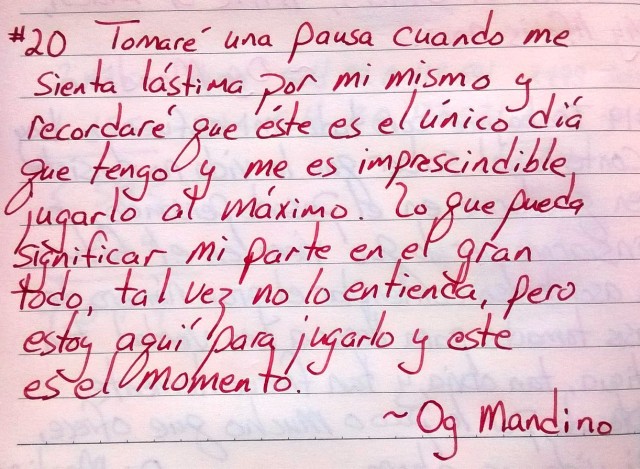 #20 Tomaré una pausa cuando me
sienta lástima por mi mismo y
recordaré que éste es el único diá
que tengo y me es imprescindible
jugarlo al máximo. Lo que pueda
significar mi parte en el gran
todo, tal vez no lo entienda, pero
estoy aquí para jugarlo y este
es el momento.
~Og Mandino